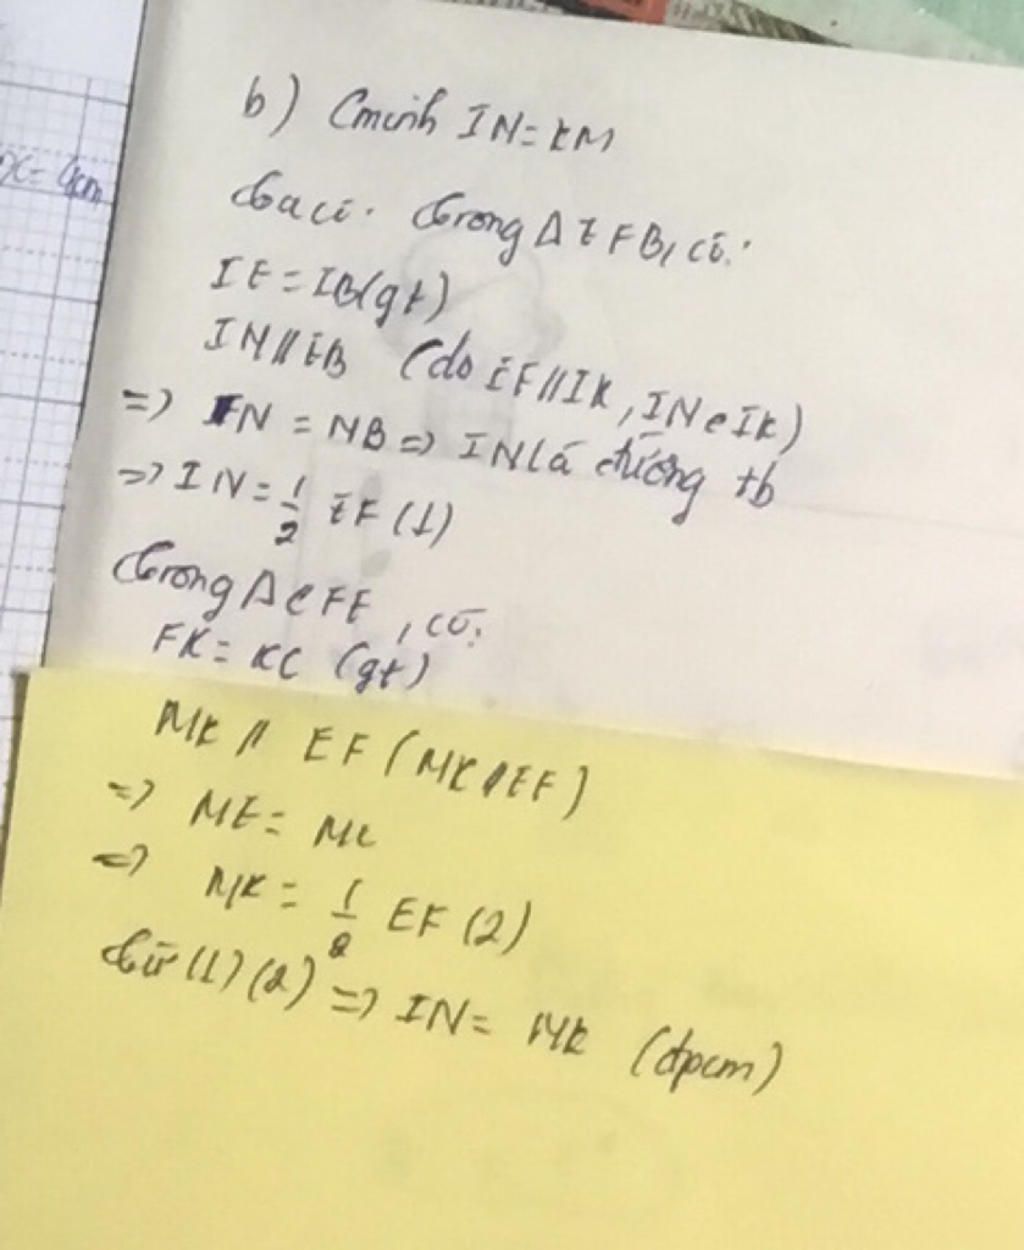 x = 4cm
b) Cminh IN = KM
Ta có: Trong Δ EFB, có:
IE = IB (gt)
IN // EB (do EF // IK, IN ∈ IK)
=> FN = NB => IN là đường tb
=> IN = 1/2 EF (1)
Trong Δ CFE, có:
FK = KC (gt)
MK // EF (MK // EF)
=> ME = MC
=> MK = 1/2 EF (2)
Từ (1) (2) => IN = MK (đpcm)